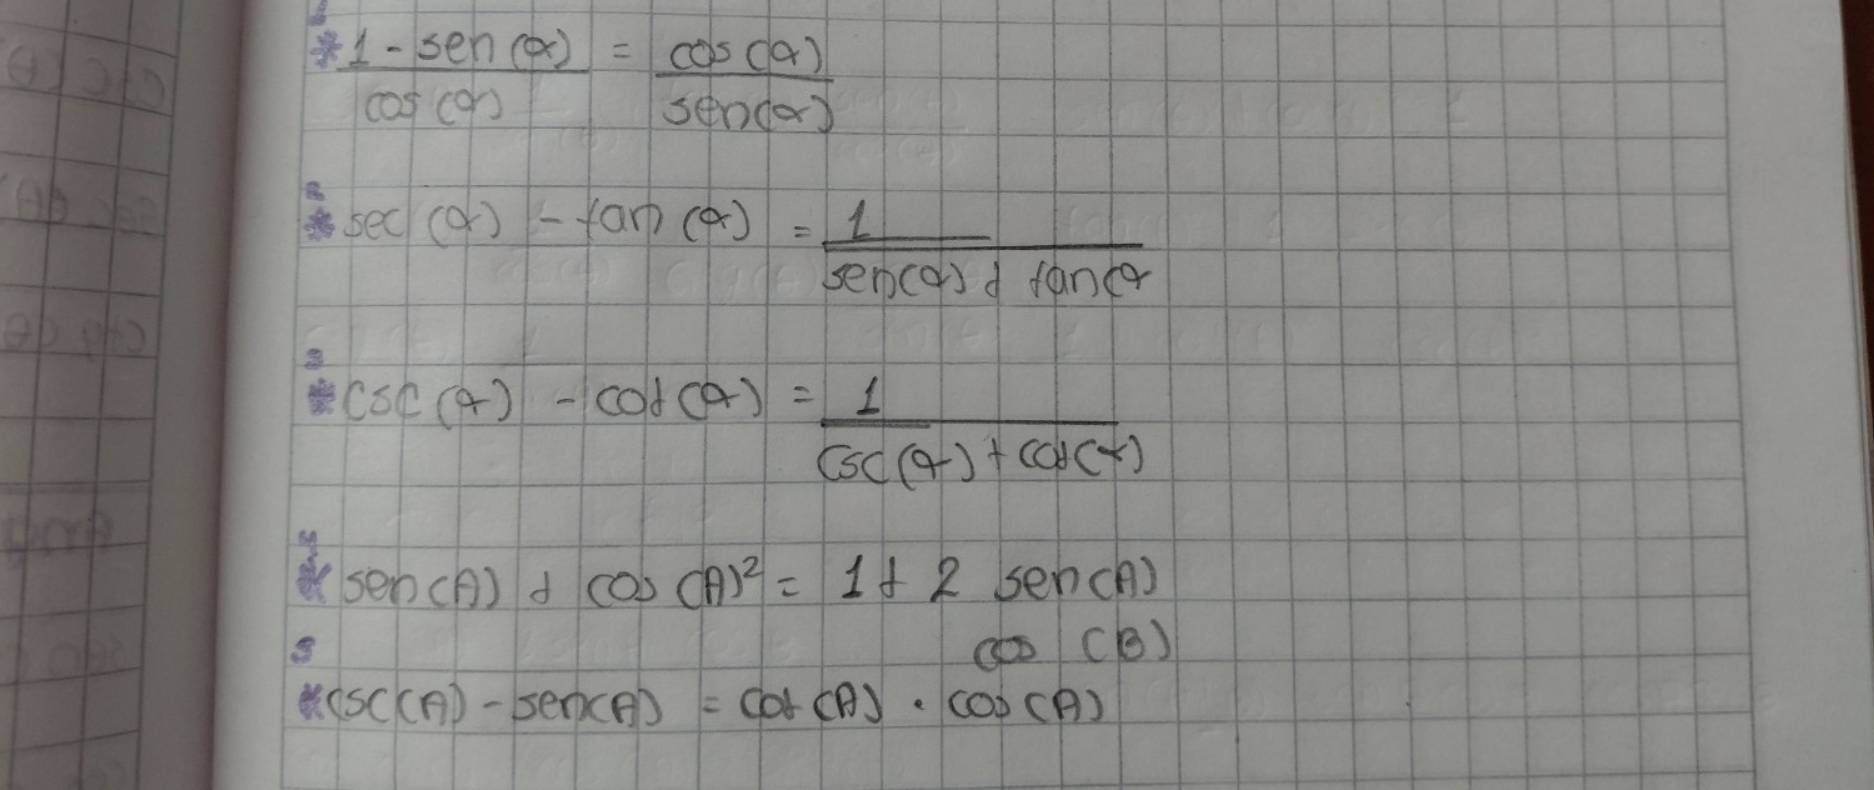 * 1 - sen(α) = cos(α)
cos(α) sen(α)
* sec(α) - tan(α) = 1
sen(α) + tan(α
* csc(α) - cot(α) = 1
csc(α) + cot(α)
* sen(A) + cos(A)² = 1 + 2 sen(A)
cos (B)
* csc(A) - sen(A) = cot(A) · cos(A)